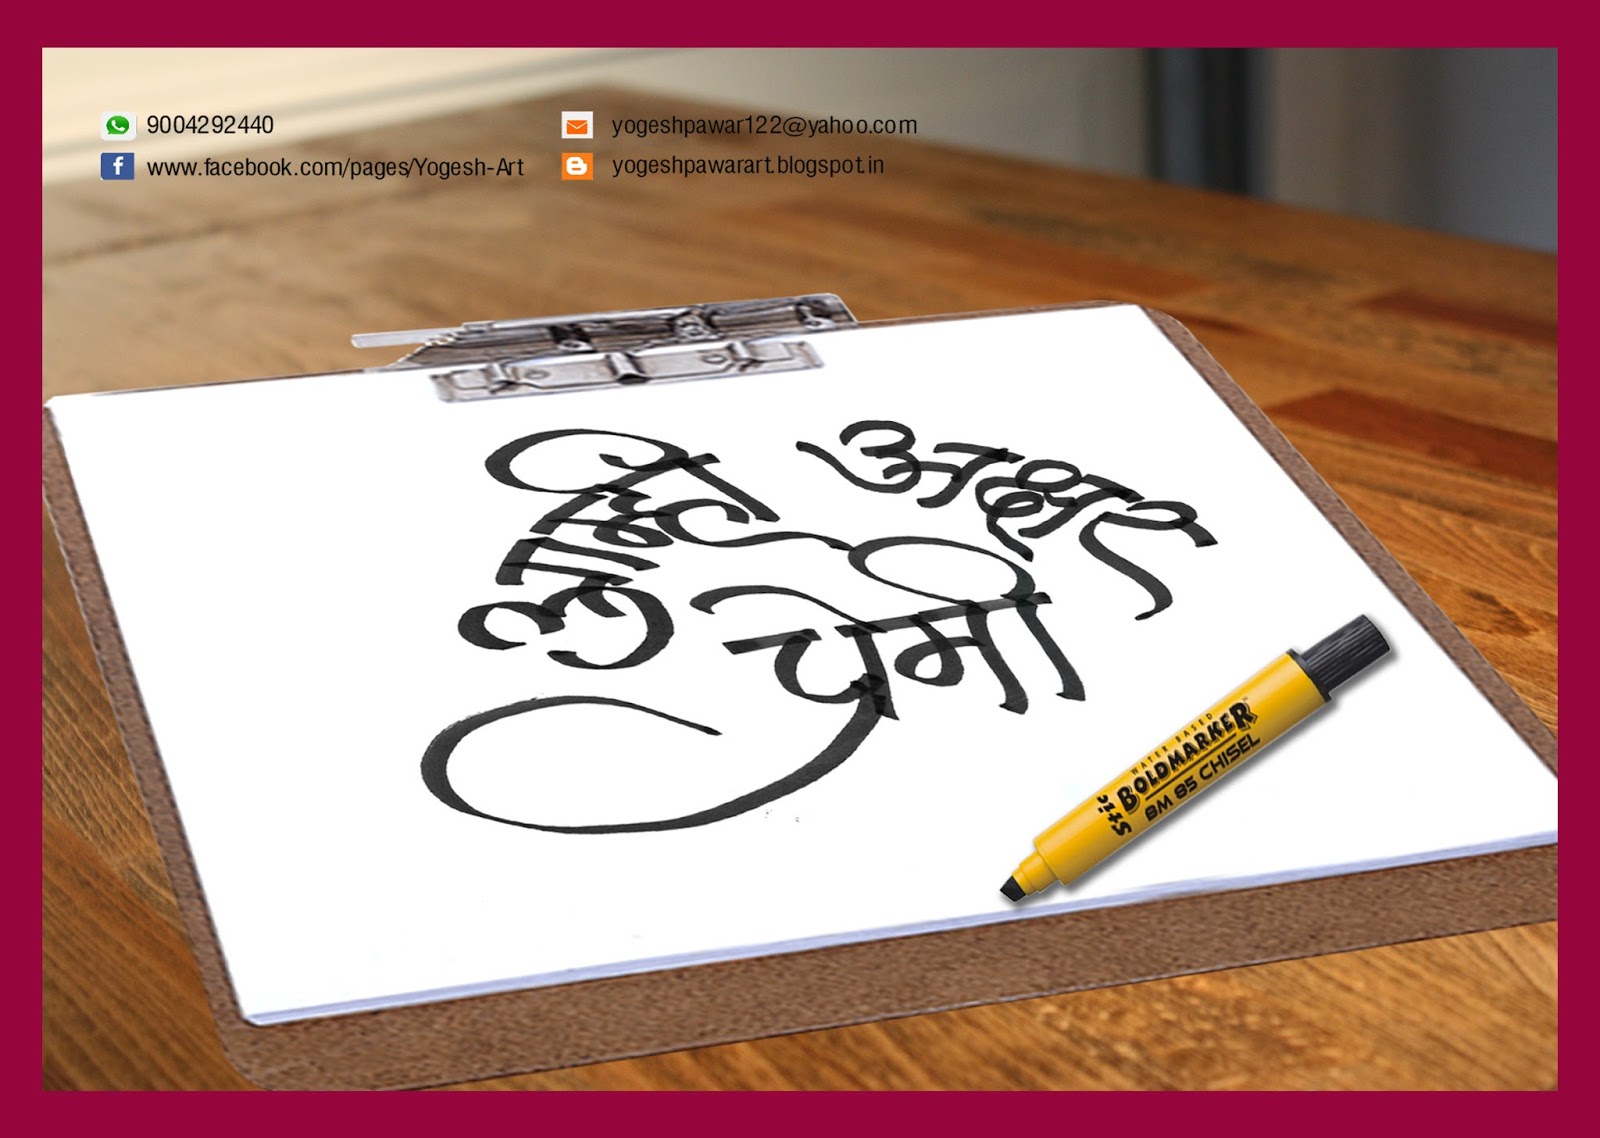 9004292440
yogeshpawar122@yahoo.com
www.facebook.com/pages/Yogesh-Art
yogeshpawarart.blogspot.in
आम्ही अक्षर
प्रेमी
WATER BASED
BOLDMARKER
Stic BM 85 CHISEL